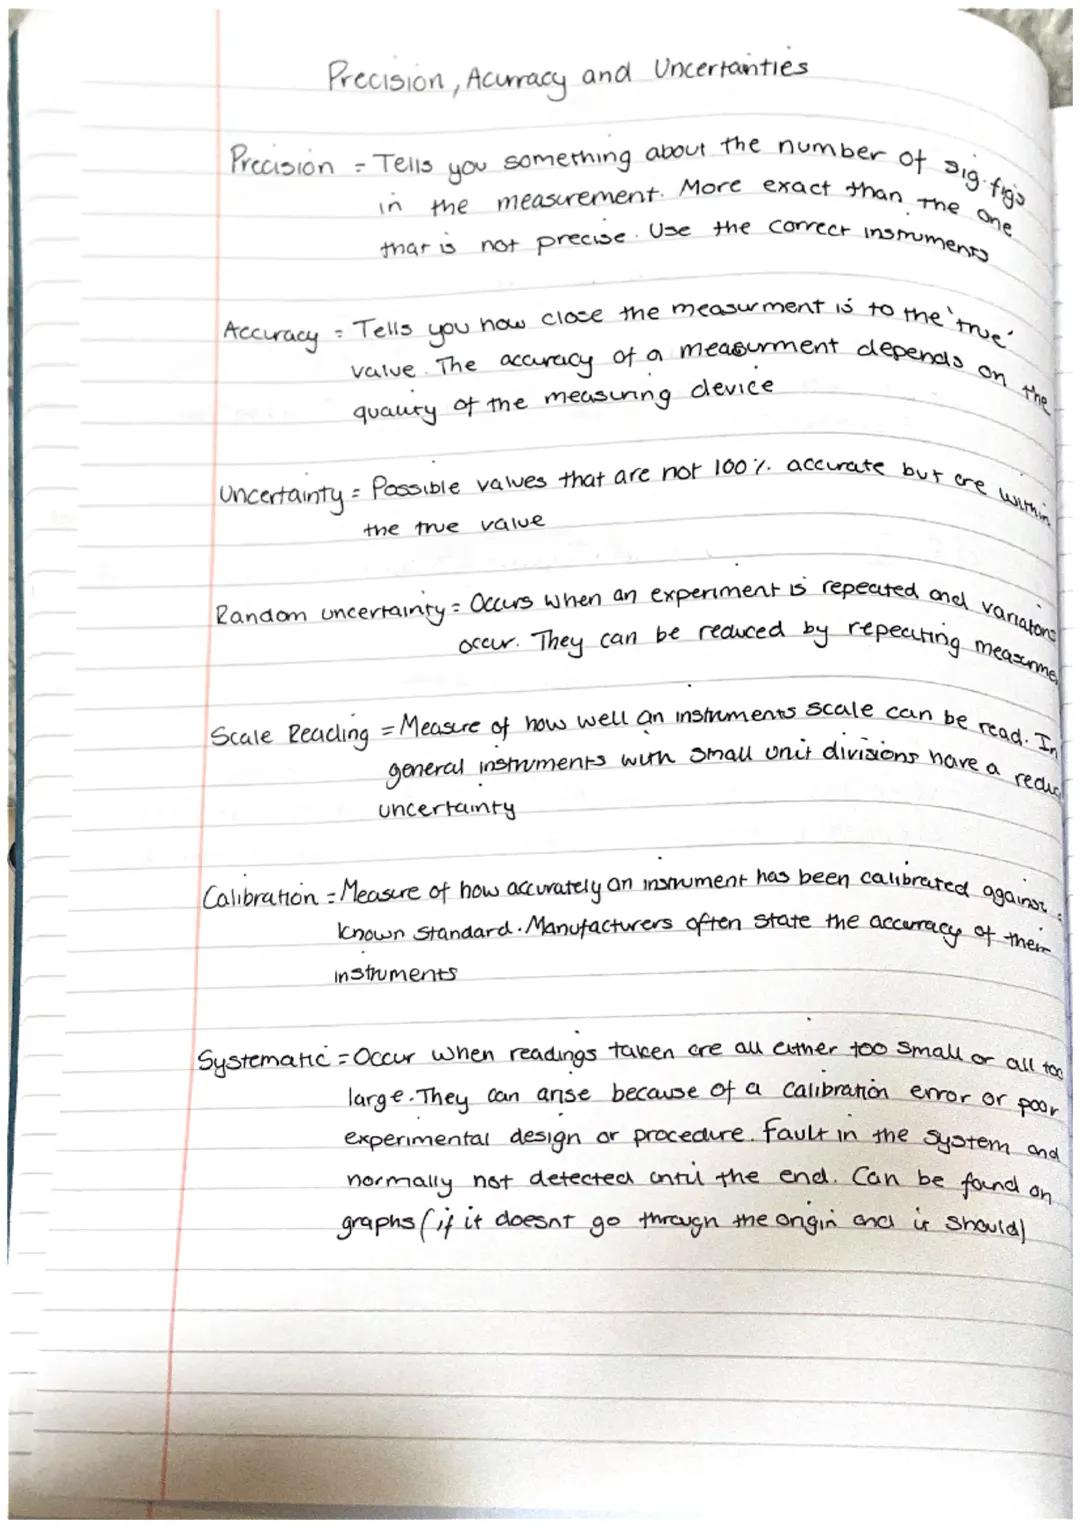 Precision, Acurracy and Uncertainties
Precision = Tells you something about the number of sig.figs
in the measurement. More exact than the one
that is not precise. Use the correct instruments
Accuracy = Tells you how close the measurment is to the 'true'
value. The accuracy of a measurment depends on the
quality of the measuring device
Uncertainty = Possible values that are not 100% accurate but are within
the true value
Random uncertainty = Occurs when an experiment is repeated and variatons
occur. They can be reduced by repeating measurme
Scale Reading = Measure of how well an instruments scale can be read. In
general instruments with small unit divisions have a reduc
uncertainty
Calibration = Measure of how accurately an instrument has been calibrated against
known standard. Manufacturers often state the accurracy of their
instruments
Systematic = Occur when readings taken are all either too small or all too
large. They can arise because of a calibration error or poor
experimental design or procedure. Fault in the system and
normally not detected until the end. Can be found on
graphs (if it doesnt go through the origin and it should)